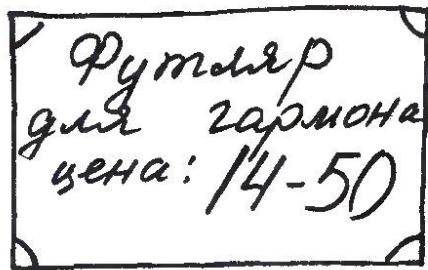 Футляр
для гармона
цена: 14-50